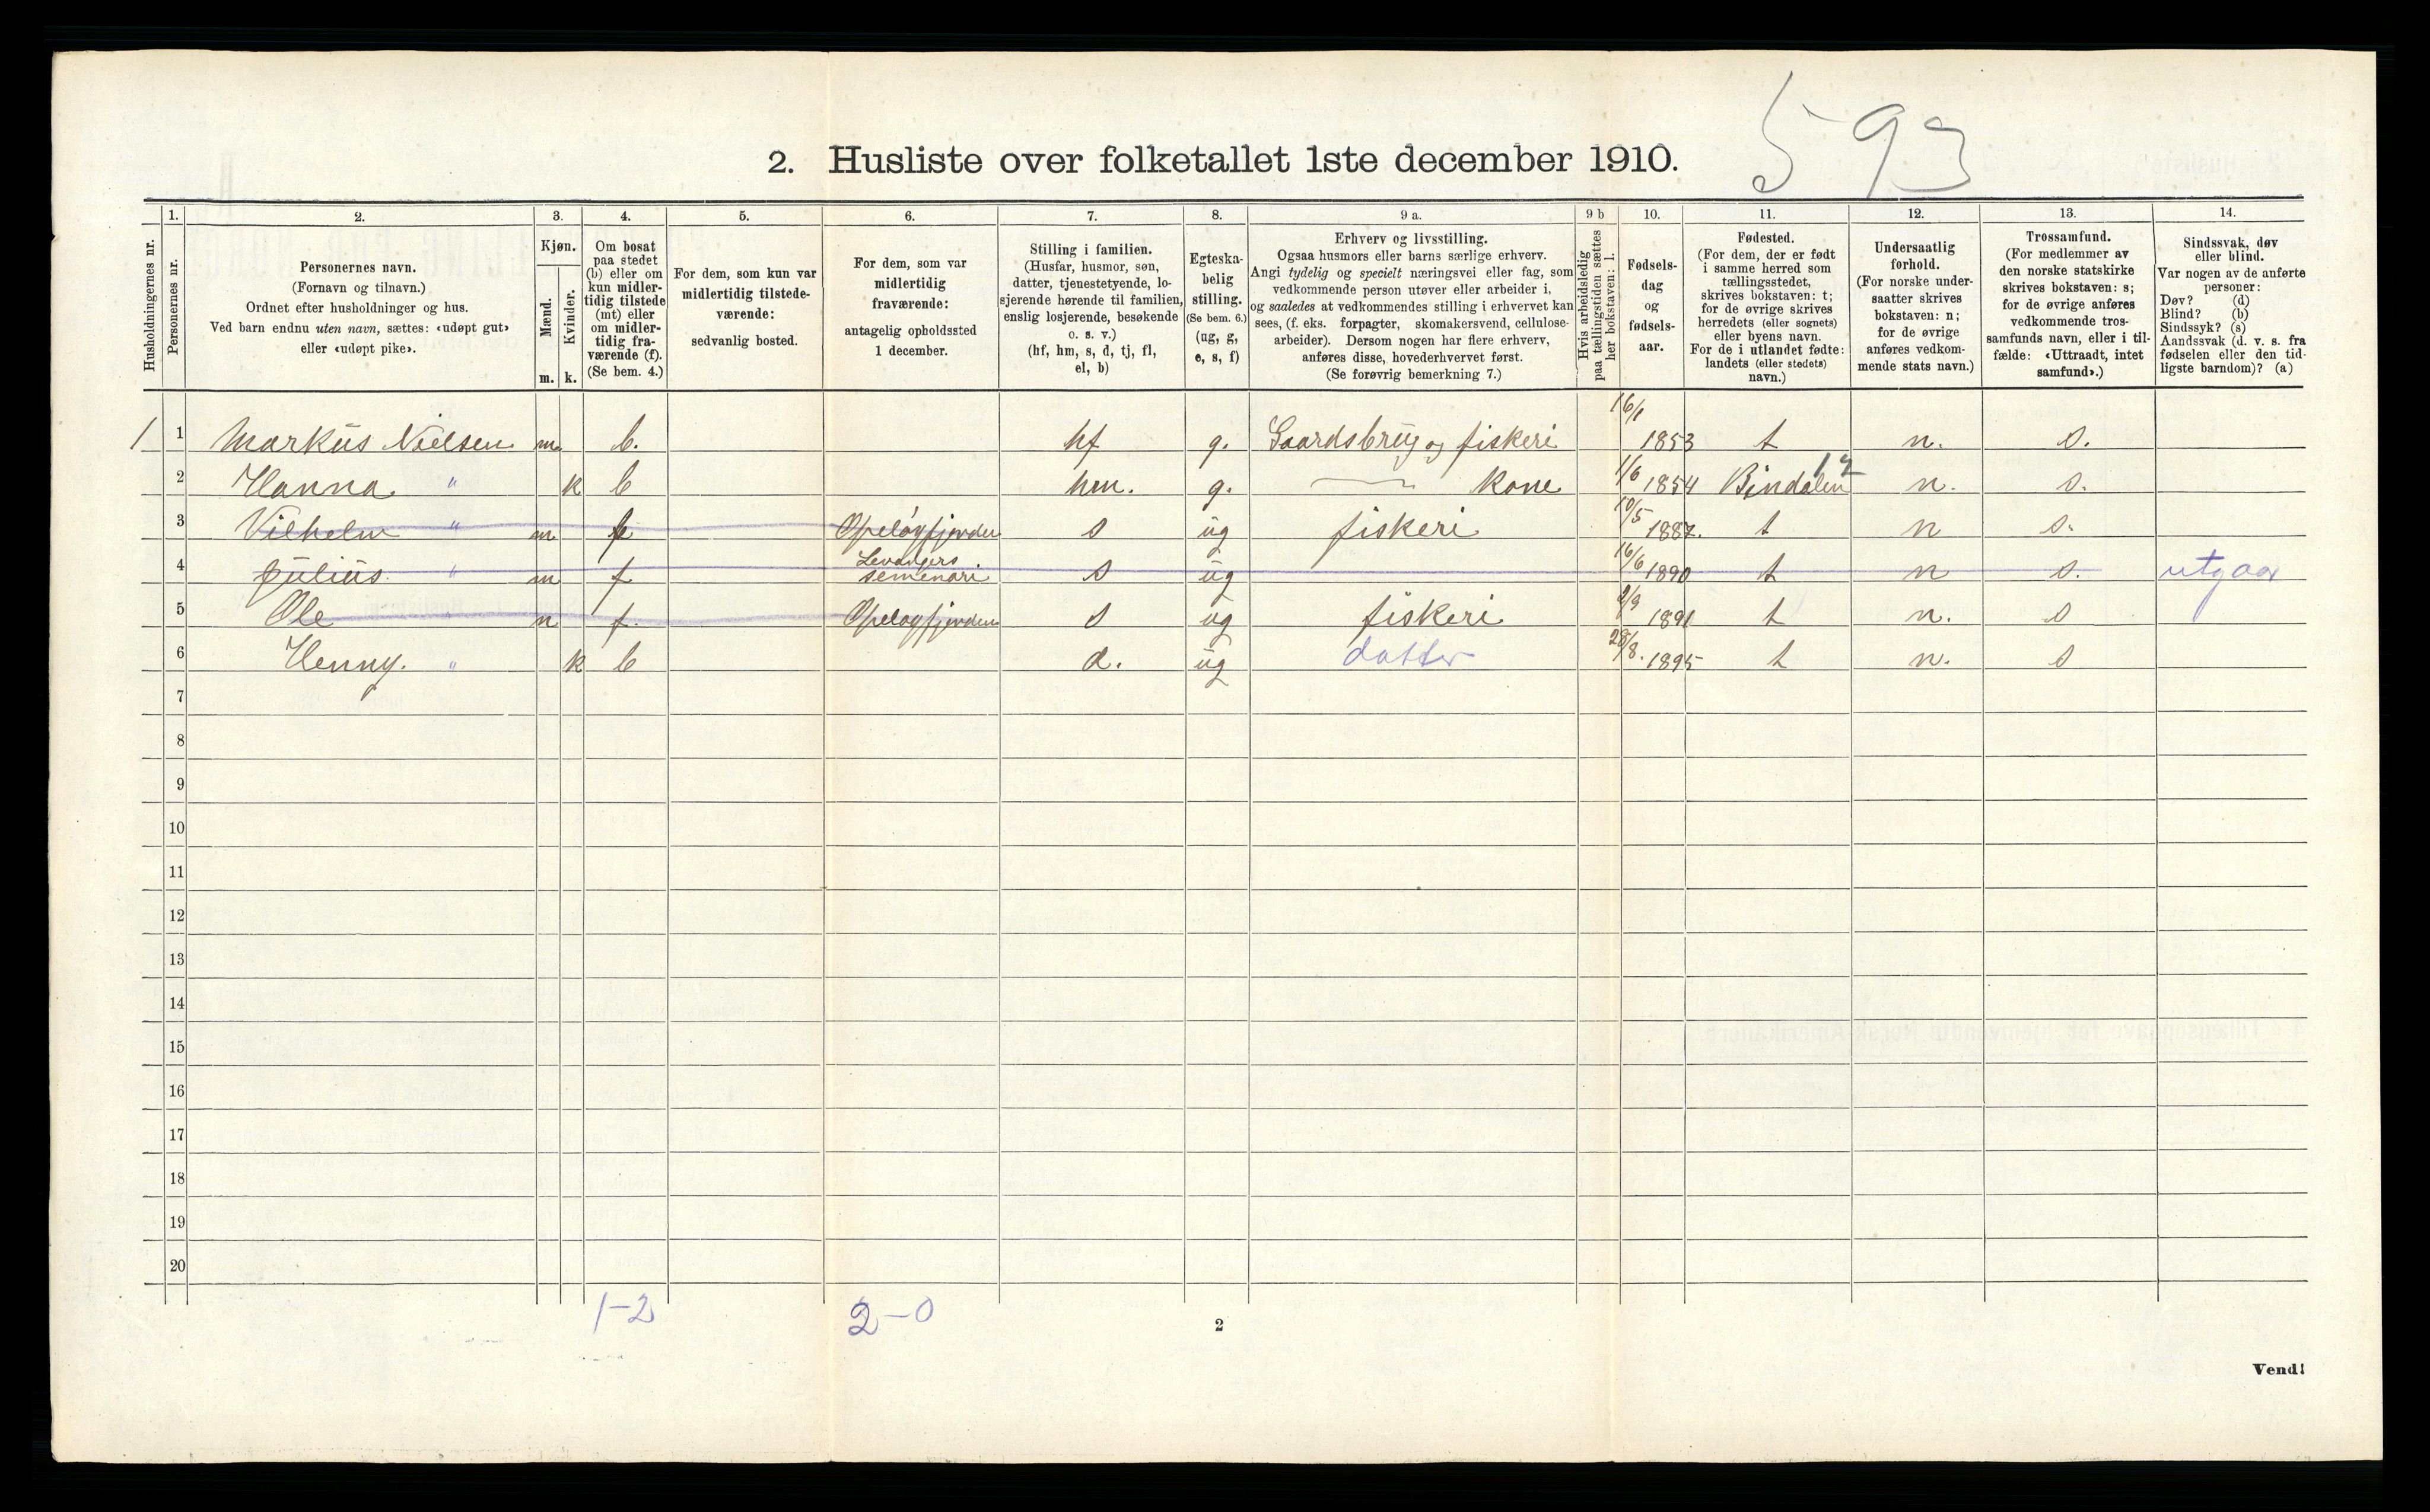 593
2. Husliste over folketallet 1ste december 1910.
Husholdningernes nr.
1. Personernes nr.
2. Personernes navn.
(Fornavn og tilnavn.)
Ordnet efter husholdninger og hus.
Ved barn endnu uten navn, sættes: «udøpt gut»
eller «udøpt pike».
3. Kjøn.
Mænd. m.
Kvinder. k.
4. Om bosat
paa stedet
(b) eller om
kun midler-
tidig tilstede
(mt) eller
om midler-
tidig fra-
værende (f).
(Se bem. 4.)
5. For dem, som kun var
midlertidig tilstede-
værende:
sedvanlig bosted.
6. For dem, som var
midlertidig
fraværende:
antagelig opholdssted
1 december.
7. Stilling i familien.
(Husfar, husmor, søn,
datter, tjenestetyende, lo-
sjerende hørende til familien,
enslig losjerende, besøkende
o. s. v.)
(hf, hm, s, d, tj, fl,
el, b)
8. Egteska-
belig
stilling.
(Se bem. 6.)
(ug, g,
e, s, f)
9 a. Erhverv og livsstilling.
Ogsaa husmors eller barns særlige erhverv.
Angi tydelig og specielt næringsvei eller fag, som
vedkommende person utøver eller arbeider i,
og saaledes at vedkommendes stilling i erhvervet kan
sees, (f. eks. forpagter, skomakersvend, cellulose-
arbeider). Dersom nogen har flere erhverv,
anføres disse, hovederhvervet først.
(Se forøvrig bemerkning 7.)
9 b Hvis arbeidsledig
paa tællingstiden sættes
her bokstaven: l.
10. Fødsels-
dag
og
fødsels-
aar.
11. Fødested.
(For dem, der er født
i samme herred som
tællingsstedet,
skrives bokstaven: t;
for de øvrige skrives
herredets (eller sognets)
eller byens navn.
For de i utlandet fødte:
landets (eller stedets)
navn.)
12. Undersaatlig
forhold.
(For norske under-
saatter skrives
bokstaven: n;
for de øvrige
anføres vedkom-
mende stats navn.)
13. Trossamfund.
(For medlemmer av
den norske statskirke
skrives bokstaven: s;
for de øvrige anføres
vedkommende tros-
samfunds navn, eller i til-
fælde: «Uttraadt, intet
samfund».)
14. Sindssvak, døv
eller blind.
Var nogen av de anførte
personer:
Døv? (d)
Blind? (b)
Sindssyk? (s)
Aandssvak (d. v. s. fra
fødselen eller den tid-
ligste barndom)? (a)
1 1 Markus Nielsen m b. hf g. Gaardsbrug og fiskeri 16/1 1853 t n. s.
2 Hanna " k b hm. g. kone 1/6 1854 Bindalen n. s.
3 Vilhelm " m f Opeløyfjorden s ug fiskeri 10/5 1887. t n s.
4 Julius " m f Levangers seminari s ug 16/6 1890 t n s. utgaar
5 Ole " m f. Opeløyfjorden s ug fiskeri 2/9 1891 t n. s
6 Henny. " k b d. ug datter 28/8. 1895 t n. s
7
8
9
10
11
12
13
14
15
16
17
18
19
20
1-2 2-0
2
Vend!